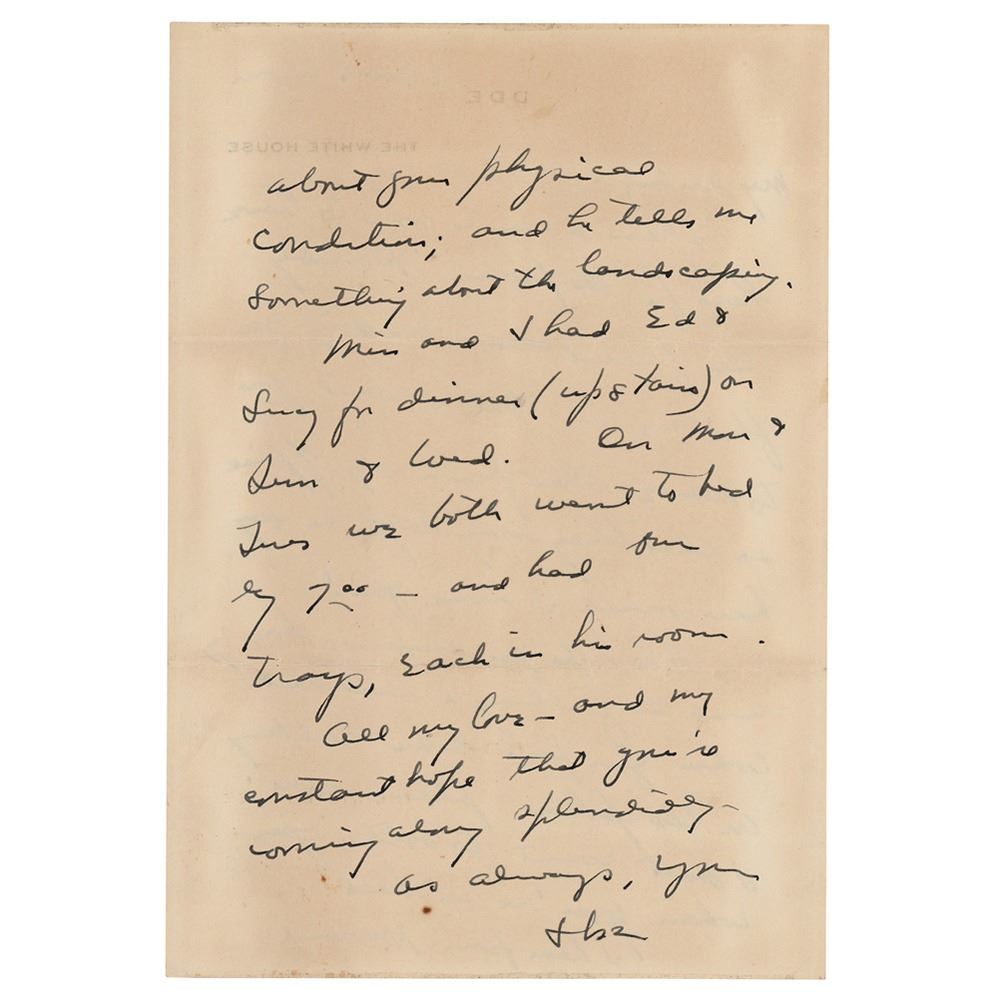 DDE
THE WHITE HOUSE
about your physical
condition; and he tells me
something about the landscaping.
Min and I had Ed &
Lucy for dinner (upstairs) on
Sun & Wed. On Mon &
Tues we both went to bed
by 7⁰⁰ — and had our
trays, each in his room.
All my love — and my
constant hope that you're
coming along splendidly —
as always, your
Ike